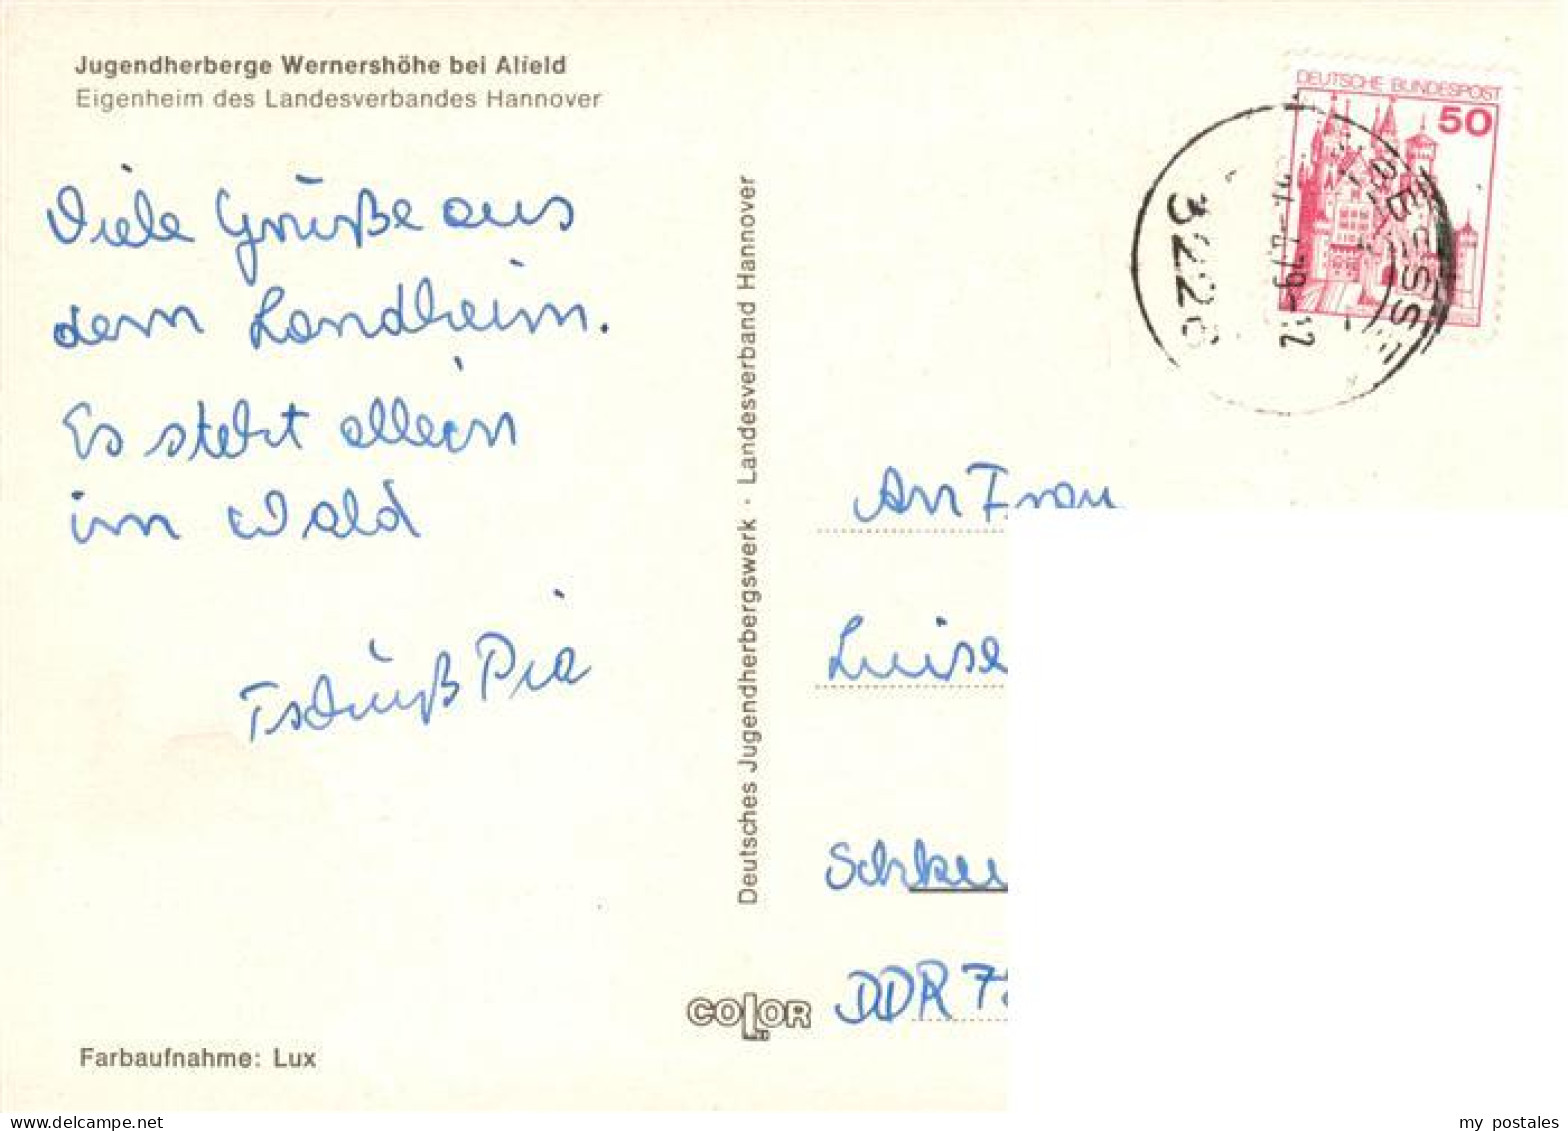 Jugendherberge Wernershöhe bei Alfeld
Eigenheim des Landesverbandes Hannover
Viele Grüße aus
dem Landheim.
Es steht allein
im Wald
Tschüß Pia
Farbaufnahme: Lux
Deutsches Jugendherbergswerk · Landesverband Hannover
COLOR
DEUTSCHE BUNDESPOST
50
322
An Frau
Luise
Schkeu
DDR 7
my postales